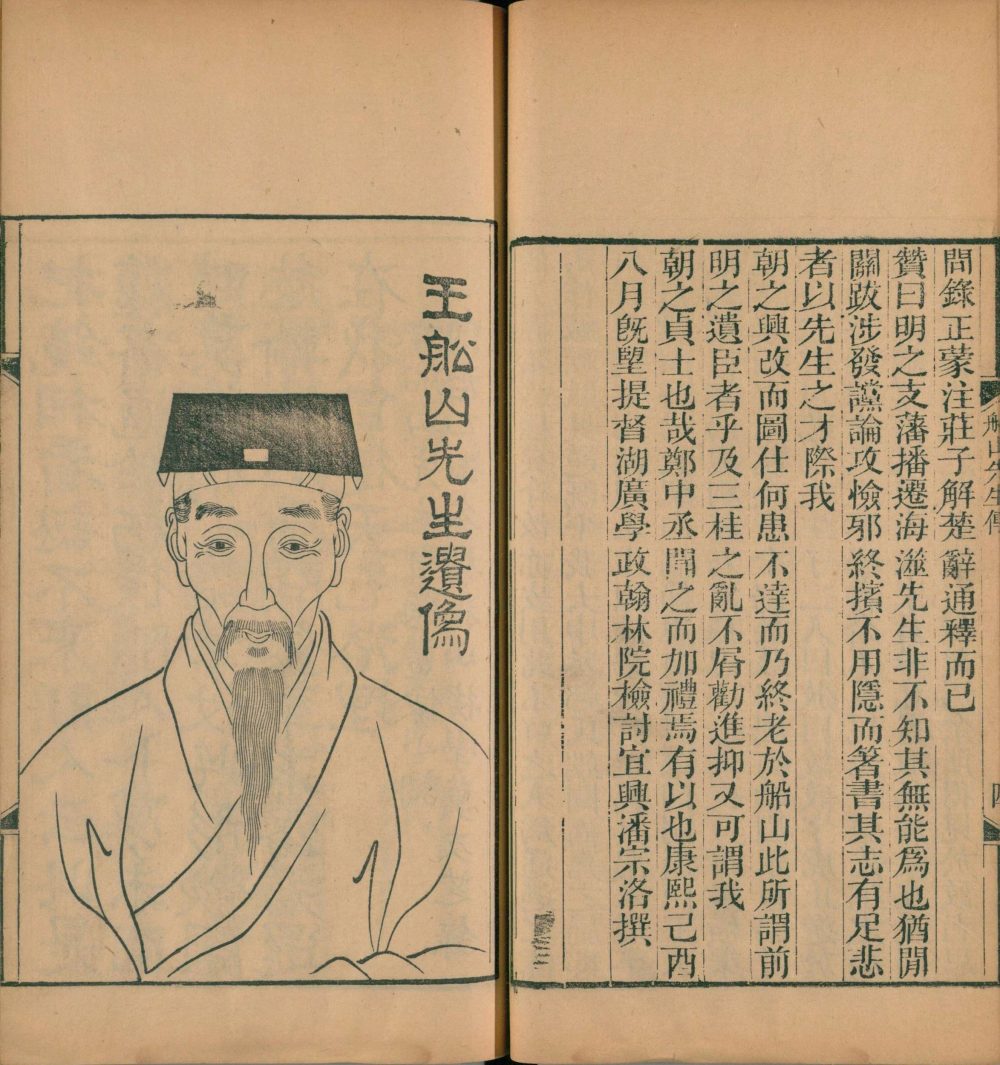 船山先生傳
問錄正蒙注莊子解楚辭通釋而已
贊曰明之支藩播遷海澨先生非不知其無能爲也猶閒
關跋涉發讜論攻憸邪終擯不用隱而箸書其志有足悲
者以先生之才際我
朝之興改而圖仕何患不達而乃終老於船山此所謂前
明之遺臣者乎及三桂之亂不屑勸進抑又可謂我
朝之貞士也哉鄭中丞聞之而加禮焉有以也康熙己酉
八月旣朢提督湖廣學政翰林院檢討宜興潘宗洛撰
王舩山先生遺像